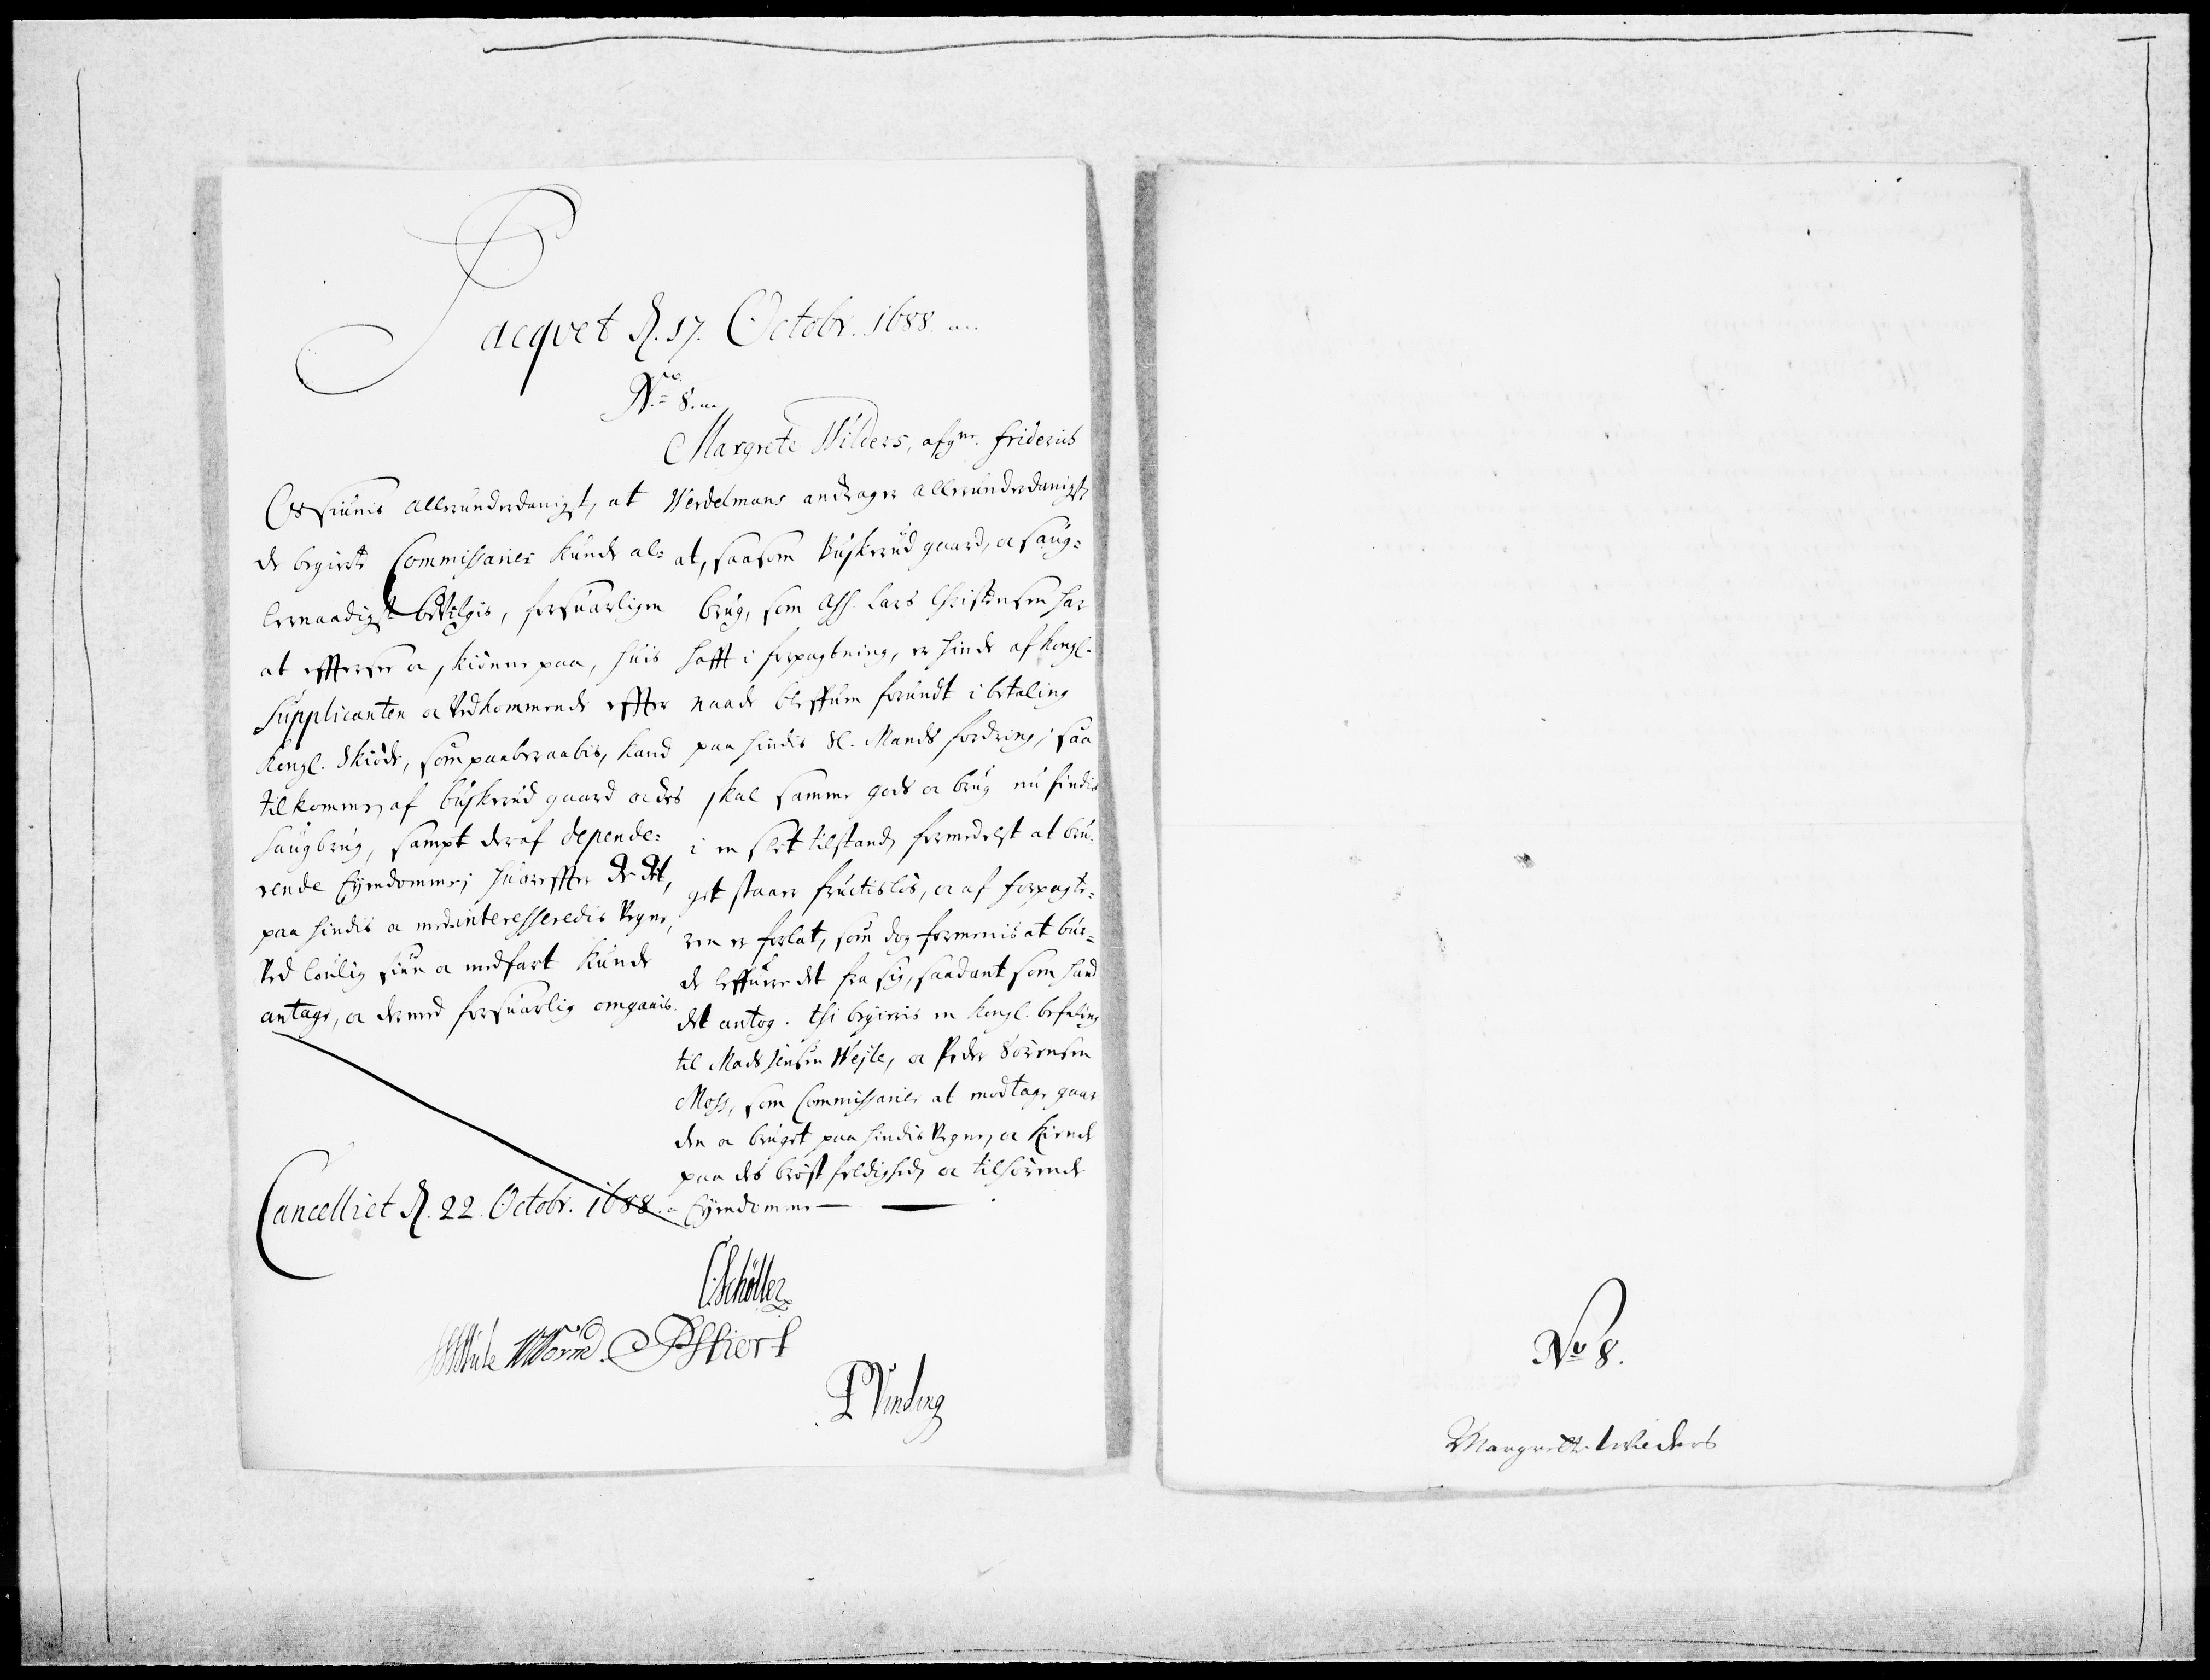 Pacqvet d. 17. Octobr. 1688
No. 8.
Margrete Wilders, afgne. Friderich
Werdelmans andrager allerunderdanigst
at, saasom Buskerud gaard, oc saug-
brug, som Ass. Lars Christensen har
hafft i forpagtning, er hinde af Kongl.
naade bleffuen forundt i betaling
paa hindis Sl. Mands fordring, saa
skal samme gods oc brug nu findis
i en slet tilstand, formedelst at bru-
get staaer fructislös, oc af forpagte-
ren er forlat, som dog formenis at bur-
de leffuere det fra sig, saadant som hand
det antog. Thi begieris en Kongl. befaling
til Mads Jensen Wejle, oc Peder Sörensen
Moss, som Commissarier at modtage gaar
den oc bruget paa hindis Vegne, oc kiende
paa des bröstfeldighed, oc tilhörende
Eyendomme
Ossiunis allerunderdanigst, at
de begierte Commissarier kunde al-
lernaadigst bevilgis, forsuarligen
at effterse oc skiönne paa, huis
Supplicanten oc Vedkommende effter
Kongl. Skiöde, som paaberaabis, kand
tilkomme, af buskerud gaard oc des
Saugbrug, sampt deraf depende-
rende Eyendomme; huoreffter de det,
paa hindis oc medinteresseredis Vegne,
Ved loulig siun oc medfart kunde
antage, oc dermed forsuarlig omgaais.
Cancelliet d. 22. Octobr. 1688.
C Schöller
Mule WWorm. PSkiort
P Vinding
No 8.
Margrette Wieders